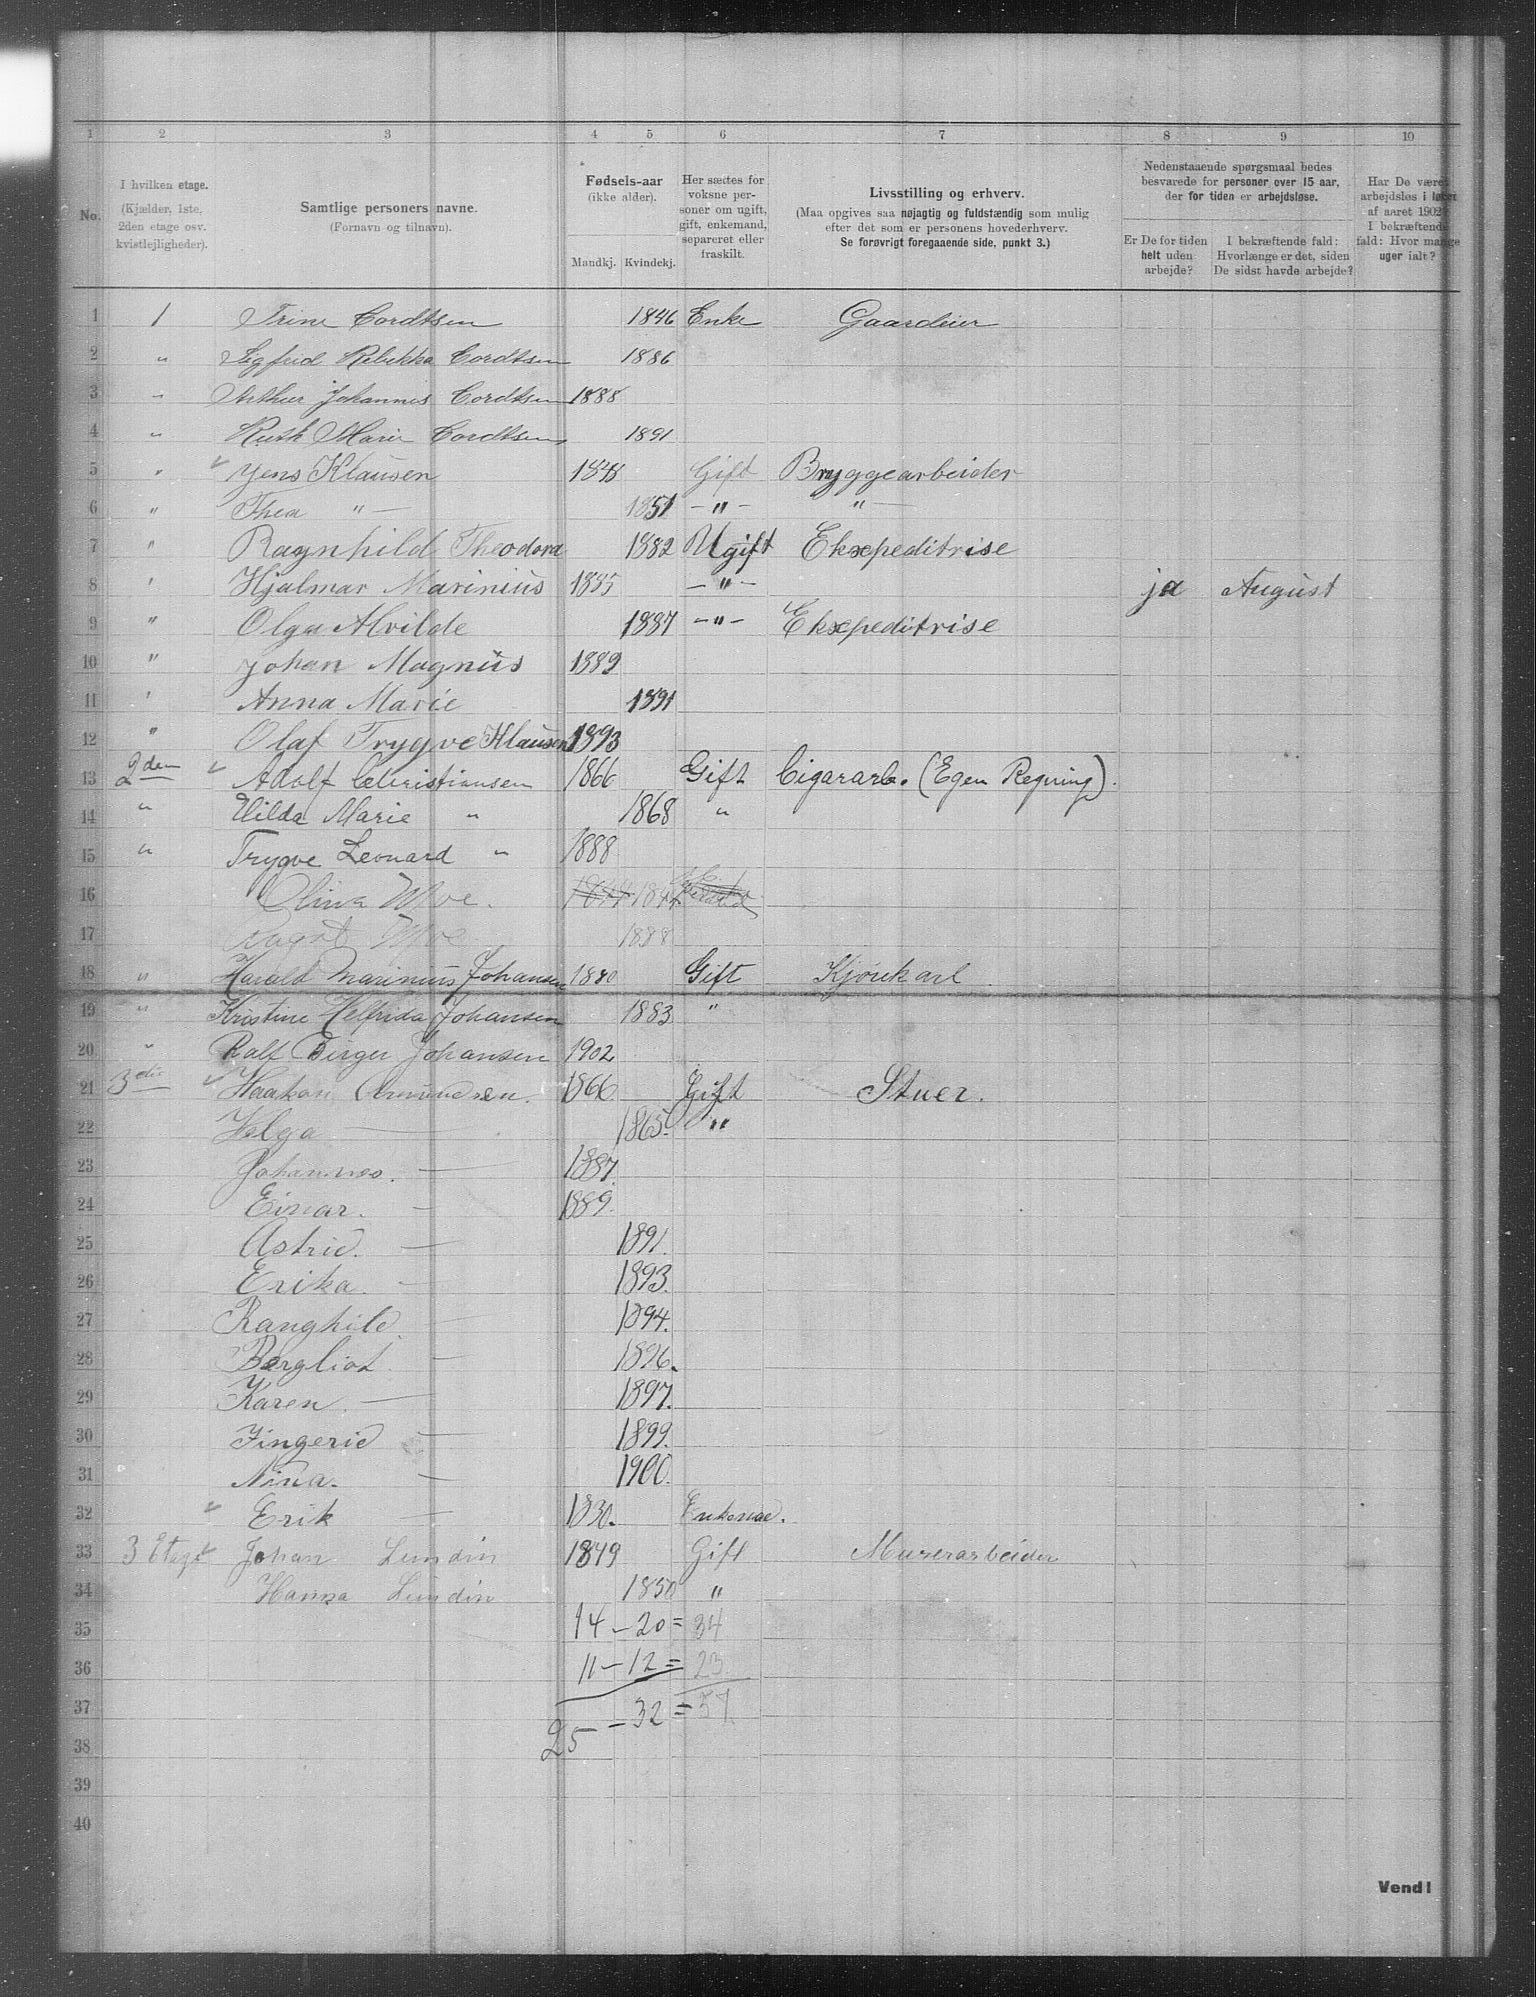 1 2 3 4 5 6 7 8 9 10
No.
I hvilken etage.
(Kjælder, 1ste,
2den etage osv.
kvistlejligheder).
Samtlige personers navne.
(Fornavn og tilnavn).
Fødsels-aar
(ikke alder).
Mandkj. Kvindekj.
Her sættes for
voksne per-
soner om ugift,
gift, enkemand,
separeret eller
fraskilt.
Livsstilling og erhverv.
(Maa opgives saa nøjagtig og fuldstændig som mulig
efter det som er personens hovederhverv.
Se forøvrigt foregaaende side, punkt 3.)
Nedenstaaende spørgsmaal bedes
besvarede for personer over 15 aar,
der for tiden er arbejdsløse.
Er De for tiden
helt uden
arbejde?
I bekræftende fald:
Hvorlænge er det, siden
De sidst havde arbejde?
Har De været
arbejdsløs i løbet
af aaret 1902
I bekræftende
fald: Hvor mange
uger ialt?
1 1 Trine Cordtsen 1846 Enke Gaardeier
2 " Sigfrid Rebekka Cordtsen 1886
3 " Arthur Johannes Cordtsen 1888
4 " Ruth Marie Cordtsen 1891
5 " Jens Klausen 1848 Gift Bryggearbeider
6 " Thea " — 1851 — " — " —
7 " Ragnhild Theodora 1882 Ugift Ekspeditrise
8 " Hjalmar Marinius 1885 — " — ja August
9 " Olga Alvilde 1887 — " — Ekspeditrise
10 " Johan Magnus 1889
11 " Anna Marie 1891
12 " Olaf Trygve Klausen 1893
13 2den Adolf Christiansen 1866 Gift Cigararb. (Egen Regning).
14 " Hilda Marie " 1868 "
15 " Trygve Leonard " 1888
16 Olina Moe. 1844
17 Aagot Moe 1888
18 " Harald Marinius Johansen 1880 Gift Kjørekarl
19 " Kristine Helfrida Johansen 1883 "
20 " Ralf Birger Johansen 1902
21 3die Haakon Amundsen. 1866 Gift Stuer.
22 Helga — 1865. "
23 Johannes. — 1887.
24 Einar. — 1889.
25 Astrid. — 1891.
26 Erika. — 1893.
27 Ranghild. — 1894.
28 Bergliot — 1896.
29 Karen. — 1897.
30 Jingerid — 1899.
31 Nina. — 1900.
32 Erik — 1830. Enkemd.
33 3 Etage Johan Lundin 1849 Gift Murerarbeider
34 Hanna Lundin 1850 "
35 14 — 20 = 34
36 11 — 12 = 23
37 25 — 32 = 57
38
39
40
Vend!